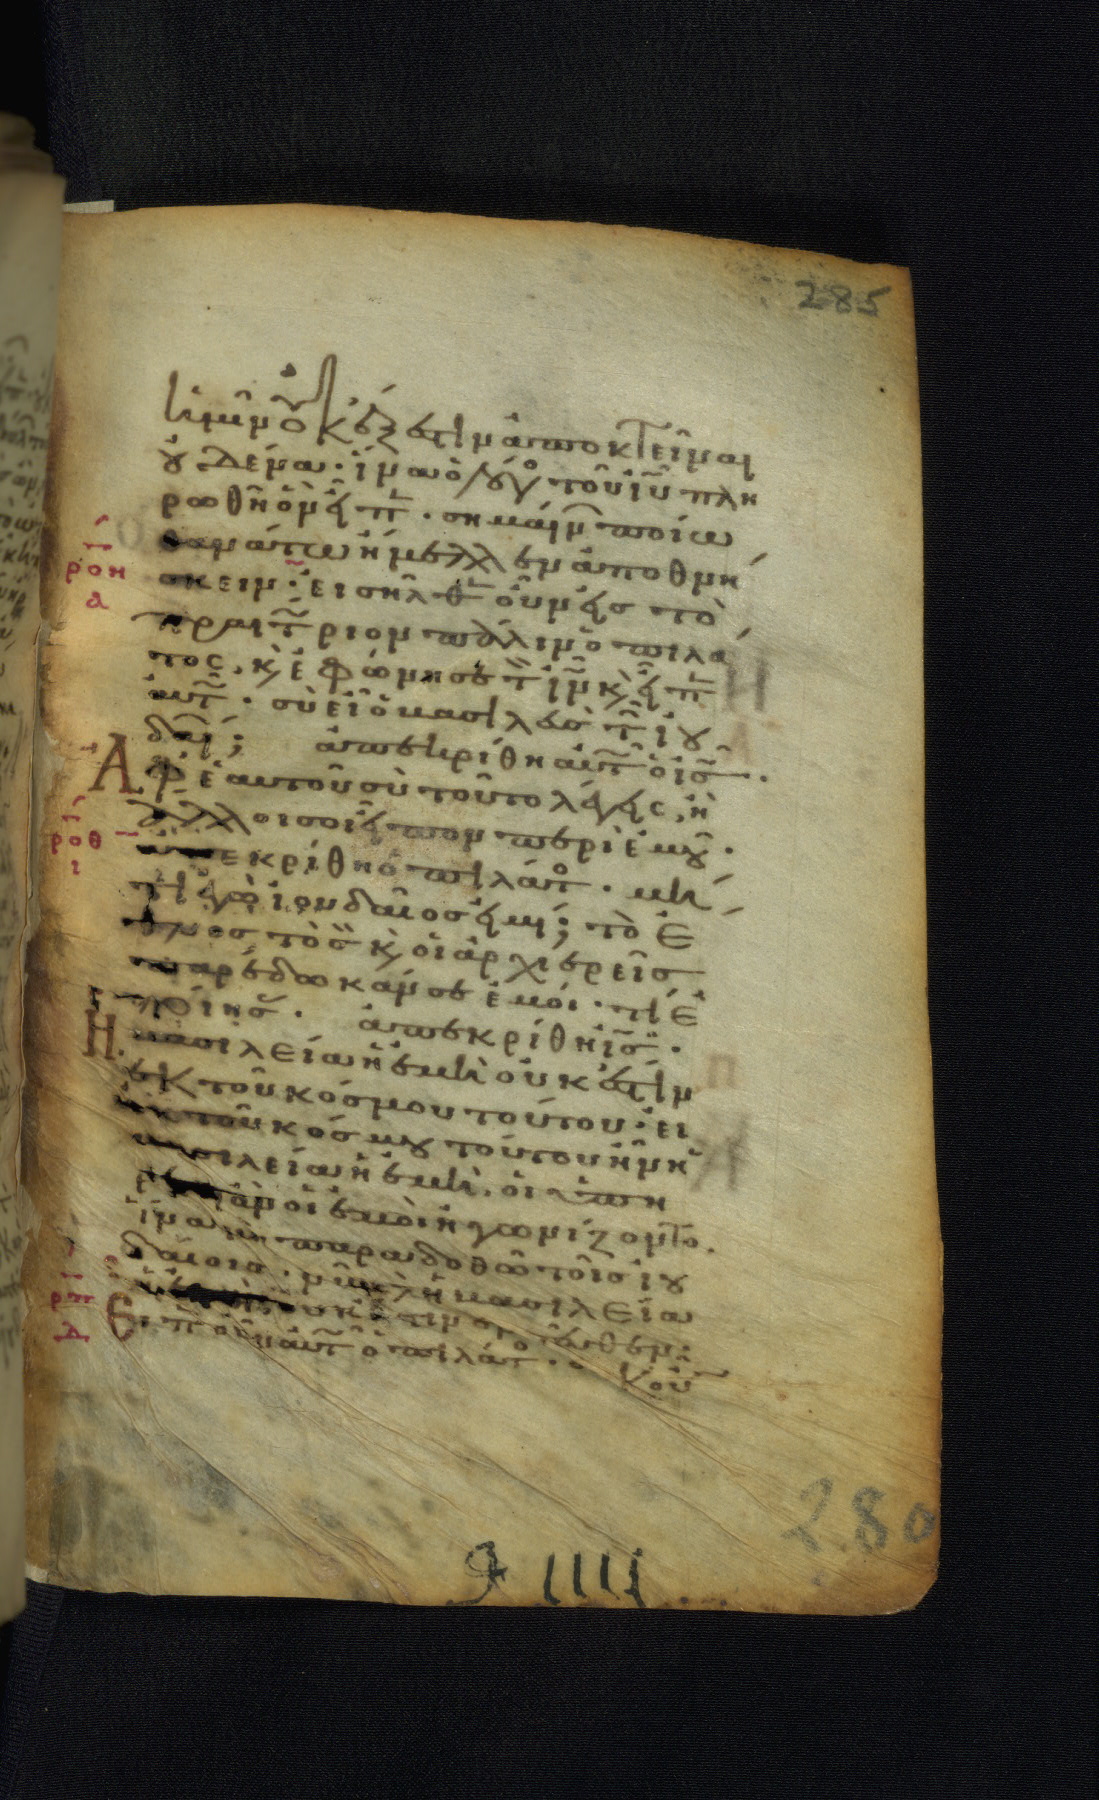 285
ἡμῖν οὐκ ἔξεστιν ἀποκτεῖναι
οὐδένα· ἵνα ὁ λόγος τοῦ ιυ πλη
ρωθῆ ὃν εἶπ· σημαίνων ποίω
θανάτω ἤμελλεν ἀποθνή
σκειν· εἰσῆλθ οὖν εἰς τὸ
ρον
α
πραιτώριον πάλιν ὁ πιλά
τος, κ ἐφώνησε τὸν ιν κ εἶπ
αὐτῶ· σὺ εἶ ὁ βασιλεὺς τῶν ἰου
δαίων; ἀπεκρίθη αὐτῶ ὁ ις·
Ἀφ ἑαυτοῦ σὺ τοῦτο λέγεις, ἢ
ἄλλοι σοι εἶπον περὶ ἐμοῦ·
ροθ
ι
ἀπεκρίθη ὁ πιλάτος· μὴ
τι ἐγὼ ἰουδαῖός εἰμι; τὸ ἔ
θνος τὸ σὸν κ οἱ ἀρχιερεῖς
παρέδωκάν σε ἐμοί· τί ἐ
ποίησας· ἀπεκρίθη ις·
Ἡ βασιλεία ἡ ἐμὴ οὐκ ἔστιν
ἐκ τοῦ κόσμου τούτου· εἰ
ἐκ τοῦ κόσμου τούτου ἦν ἡ
βασιλεία ἡ ἐμὴ, οἱ ὑπη
ρέται ἂν οἱ ἐμοὶ ἠγωνίζοντο,
ἵνα μὴ παραδοθῶ τοῖς ἰου
δαίοις· νῦν δὲ ἡ βασιλεία
ἡ ἐμὴ οὐκ ἔστιν ἐντεῦθεν·
ρπ
Εἶπ οὖν αὐτῶ ὁ πιλάτος· οὐκοῦν
280